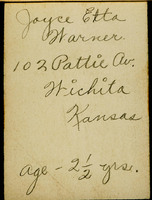 Joyce Etta
Warner.
102 Pattie Av.
Wichita
Kansas
age - 2 1/2 yrs.